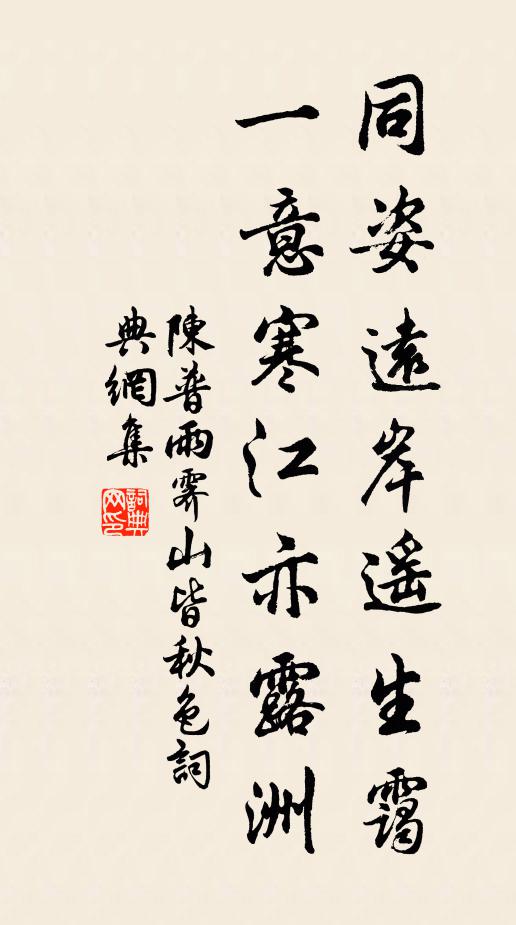 同姿遠岸遥生靄
一意寒江亦露洲
陳普雨霽山皆秋色詞
典網集
詞典
网印